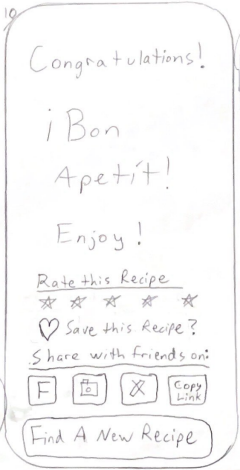 10
Congratulations!
¡Bon
Apetít!
Enjoy!
Rate this Recipe
Save this Recipe?
Share with friends on:
F
X
Copy
Link
Find A New Recipe